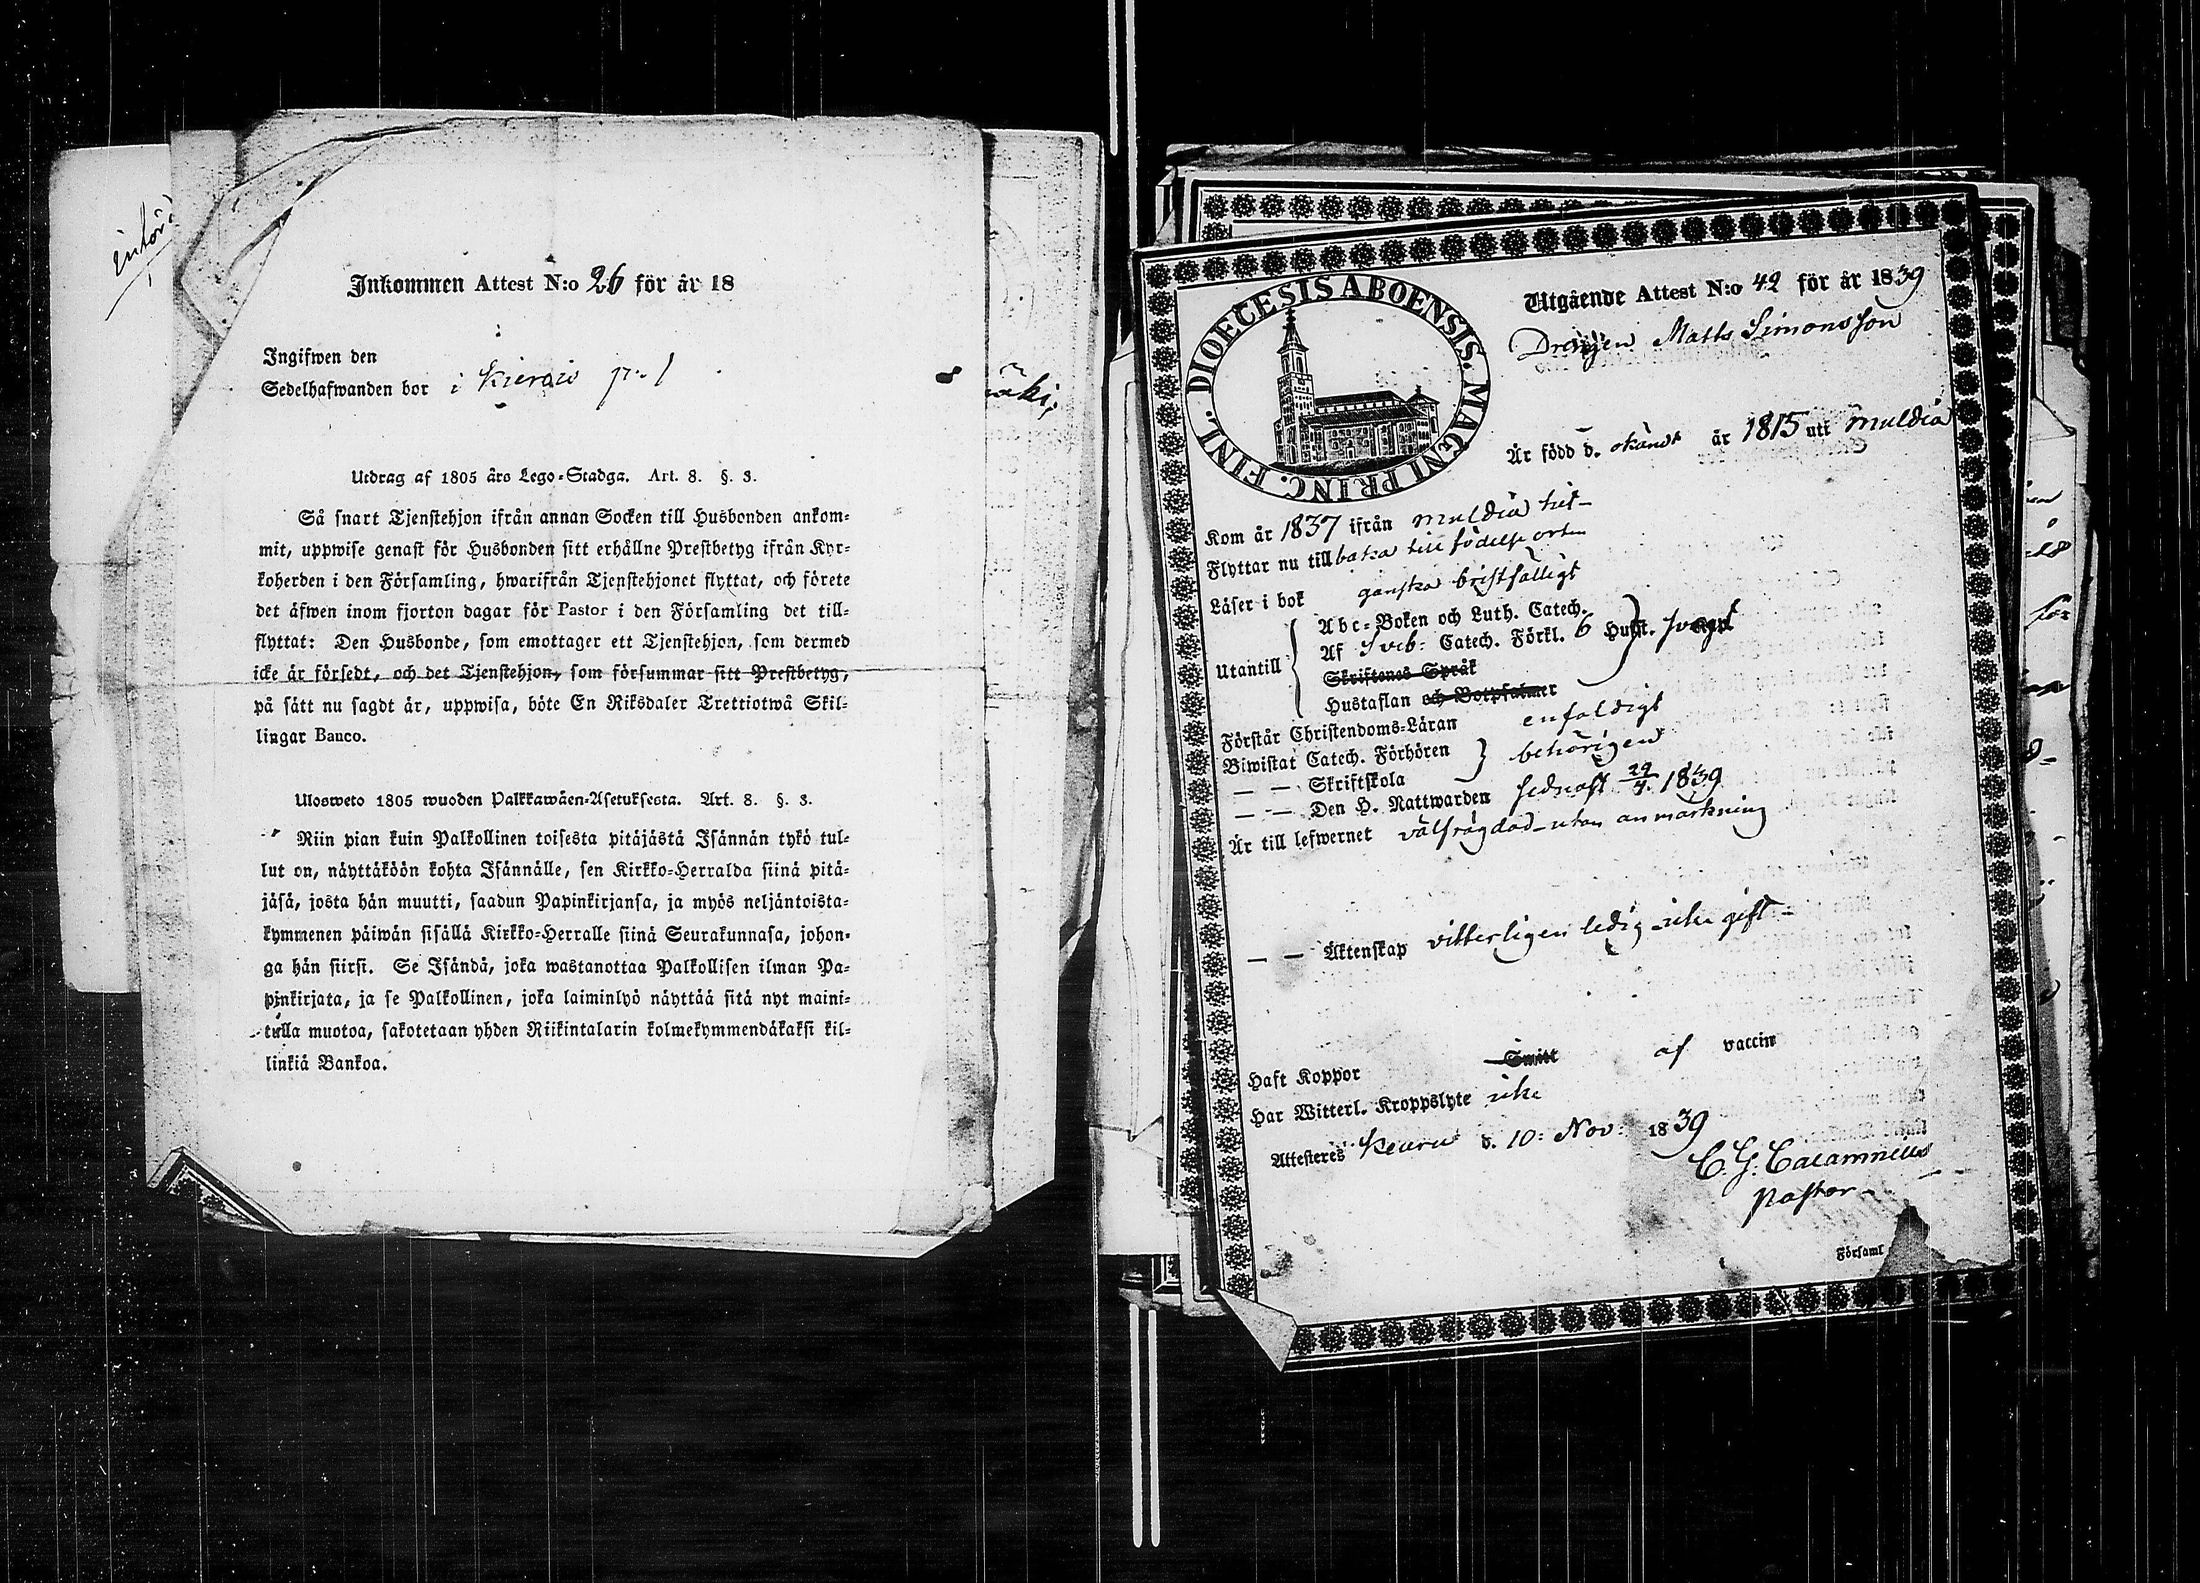 införd
Inkommen Attest N:o 26 för år 18
Ingifwen den
Sedelhafwanden bor i
Utdrag af 1805 års Lego-Stadga. Art. 8. §. 3.
Så snart Tjenstehjon ifrån annan Socken till Husbonden ankom-
mit, uppwise genast för Husbonden sitt erhållne Prestbetyg ifrån Kyr-
koherden i den Församling, hwarifrån Tjenstehjonet flyttat, och förete
det äfwen inom fjorton dagar för Pastor i den Församling det till-
flyttat: Den Husbonde, som emottager ett Tjenstehjon, som dermed
icke är försedt, och det Tjenstehjon, som försummar sitt Prestbetyg,
på sätt nu sagdt är, uppwisa, böte En Riksdaler Trettiotwå Skil-
lingar Banco.
Ulosweto 1805 wuoden Palkkawäen-Asetuksesta. Art. 8. §. 3.
Niin pian kuin Palkollinen toisesta pitäjästä Isännän tykö tul-
lut on, näyttäköön kohta Isännälle, sen Kirkko-Herralda siinä pitä-
jäsä, josta hän muutti, saadun Papinkirjansa, ja myös neljäntoista-
kymmenen päiwän sisällä Kirkko-Herralle siinä Seurakunnasa, johon-
ga hän siirsi. Se Isändä, joka wastanottaa Palkollisen ilman Pa-
pinkirjata, ja se Palkollinen, joka laiminlyö näyttää sitä nyt maini-
tulla muotoa, sakotetaan yhden Riikintalarin kolmekymmendäkaksi kil-
linkiä Bankoa.
DIOECESIS ABOENSIS. MAGNI PRINC. FINL.
Utgående Attest N:o 42 för år 1839
Drengen Matts Simonsson
Är född d. okändt år 1815 uti Muldia
Kom år 1837 ifrån Muldia hit-
Flyttar nu tillbaka till födelse orten
Läser i bok ganska bristfälligt
Utantill
Abc-Boken och Luth. Catech.
Af Sveb. Catech. Förkl. 6 Hufst. svagt
Skriftenes Språk
Hustaflan och Botpsalmer
Förstår Christendoms-Läran enfaldigt
Biwistat Catech. Förhören behörigen
— — Skriftskola
— — Den H. Nattwarden sednast 29/4 1839
Är till lefwernet välfrägdad utan anmärkning
— — Äktenskap vitterligen ledig icke gift-
Haft Koppor Smitt af vaccin
Har Witterl. Kroppslyte icke
Attesteres Keuru d. 10: Nov: 1839
C. G. Calamnius
Pastor
Församl